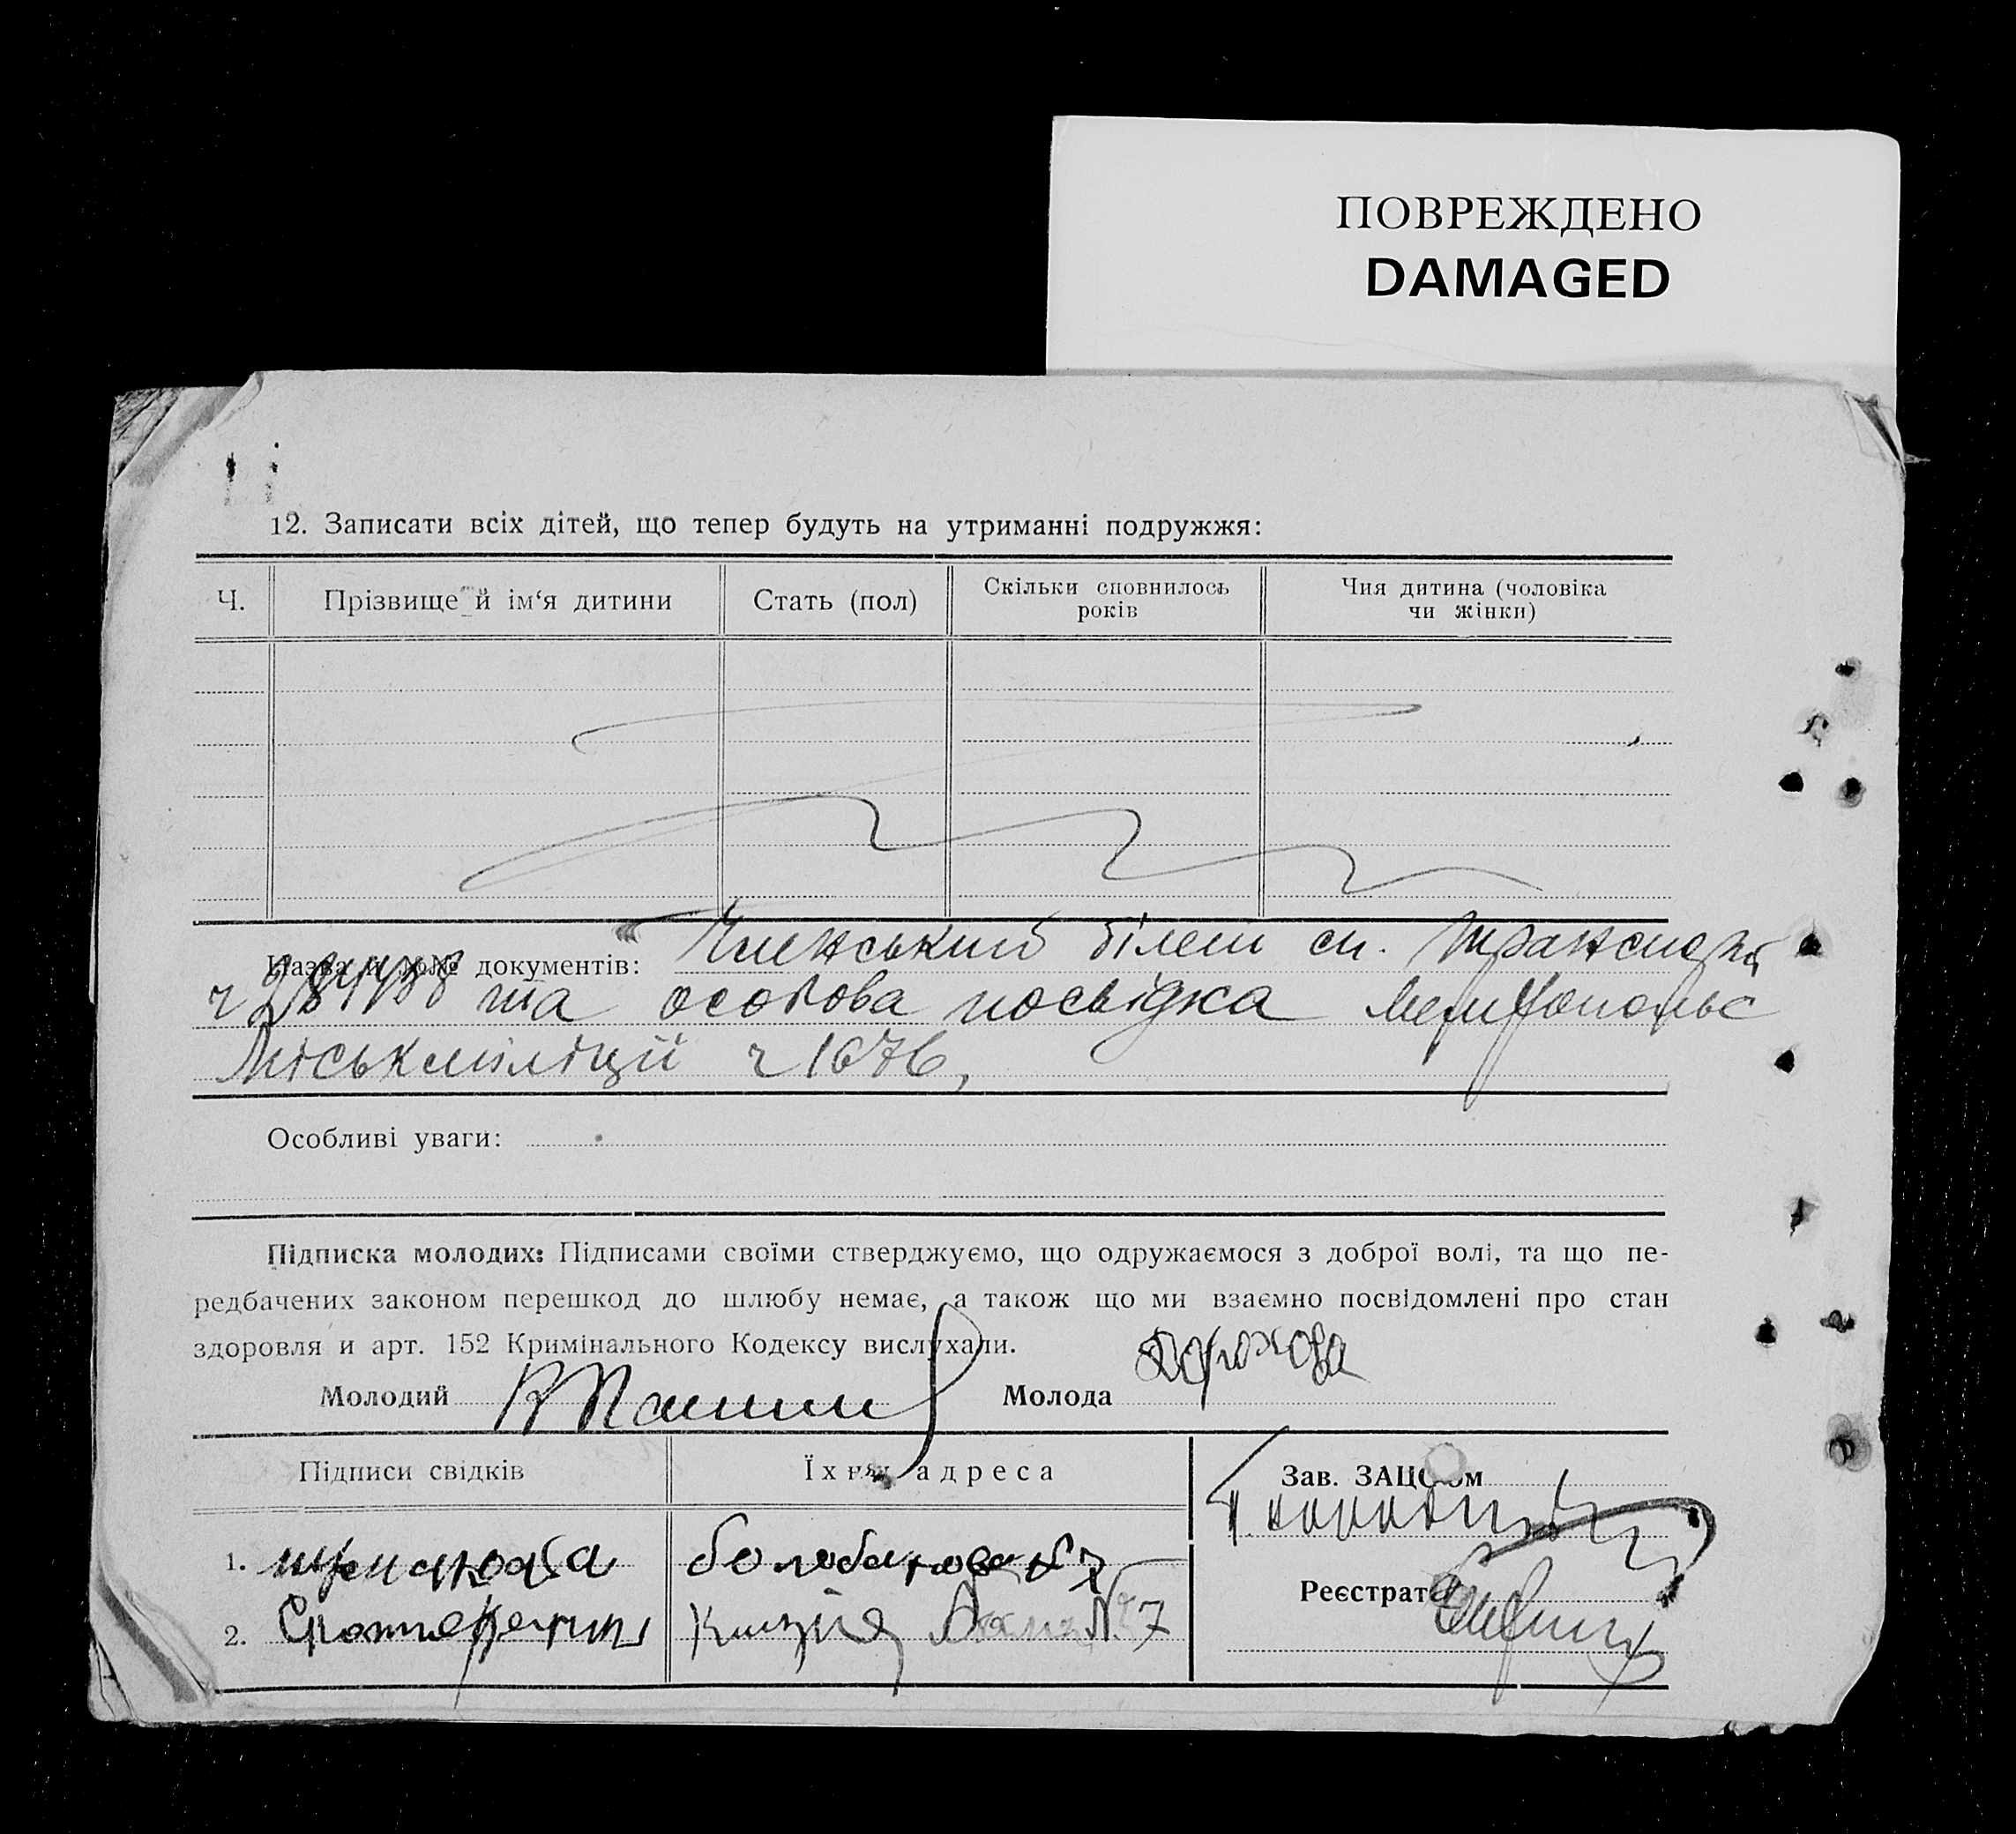 ПОВРЕЖДЕНО
DAMAGED
12. Записати всіх дітей, що тепер будуть на утриманні подружжя:
Ч. Прізвище й ім‘я дитини Стать (пол) Скільки сповнилось років Чия дитина (чоловіка чи жінки)
Назва й №№ документів: Членський білет сп. Транспорт
ч 284488 та особова посвідка Мелітопольс
Міськміліції ч 1676,
Особливі уваги:
Підписка молодих: Підписами своїми стверджуємо, що одружаємося з доброї волі, та що пе-
редбачених законом перешкод до шлюбу немає, а також що ми взаємно посвідомлені про стан
здоровля и арт. 152 Кримінального Кодексу вислухали.
Молодий Молода
Підписи свідків Їхня адреса Зав. ЗАЦСом
1. №7
Реєстратор
2. №7